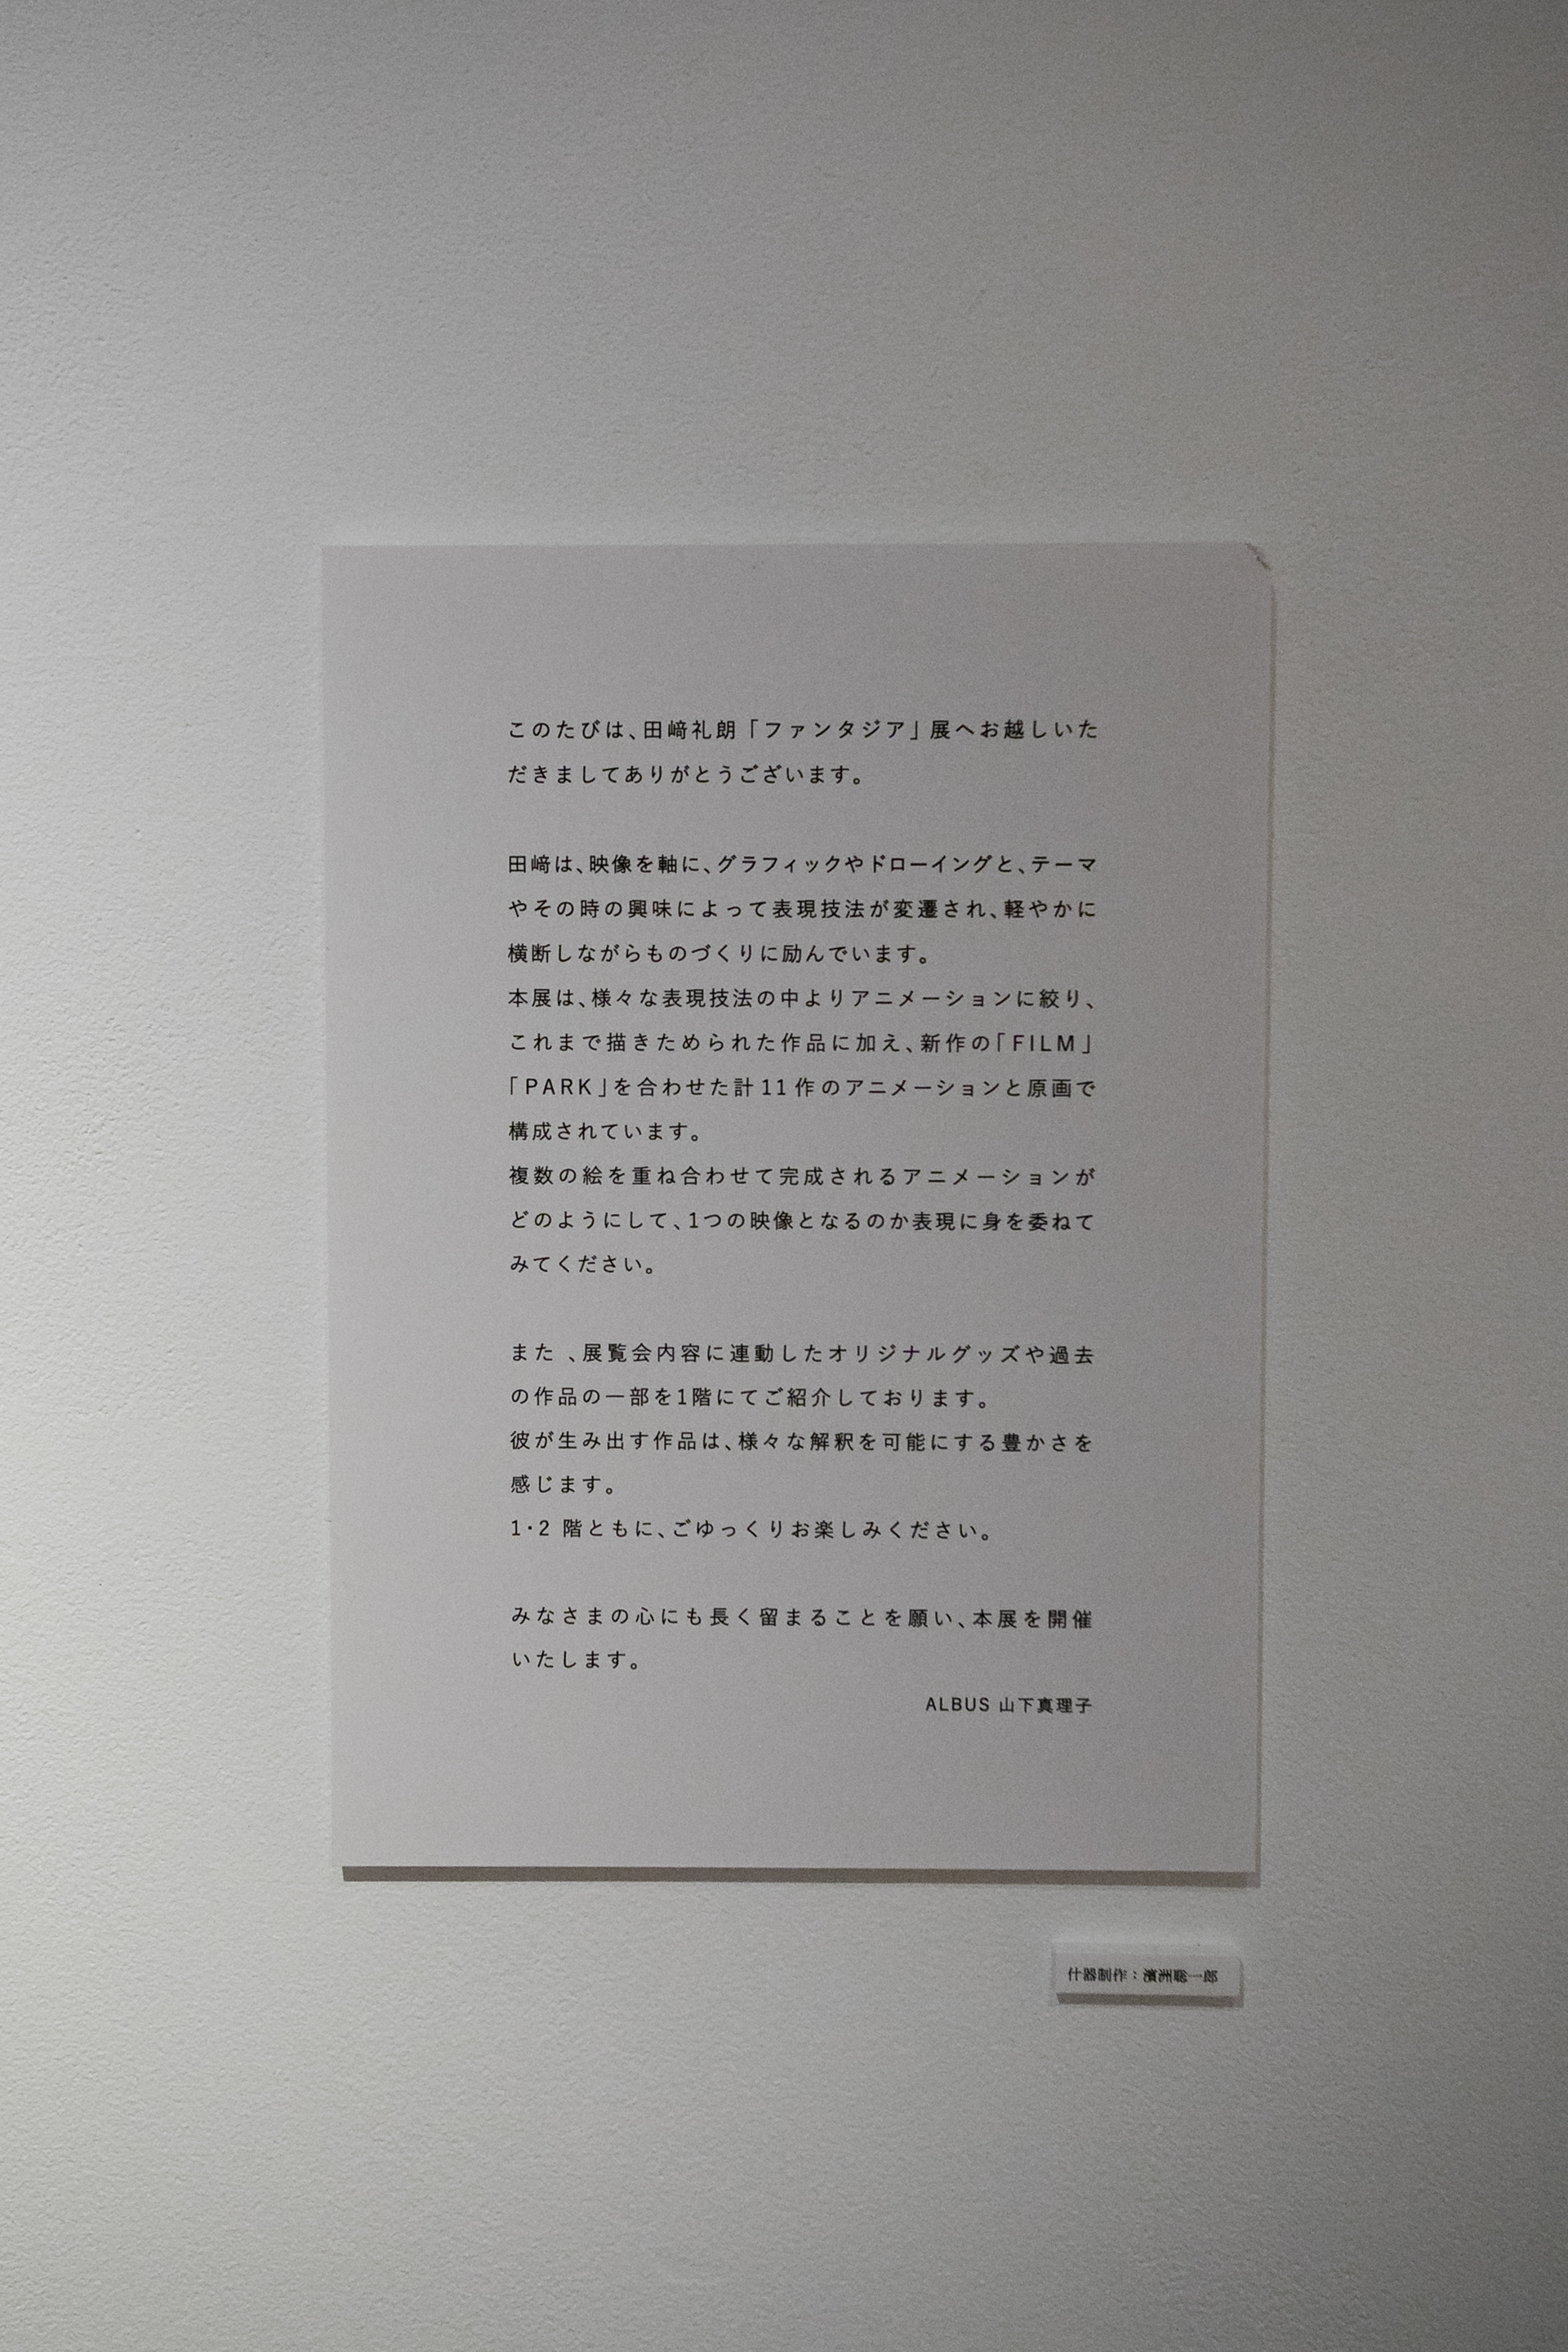 このたびは、田﨑礼朗「ファンタジア」展へお越しいた
だきましてありがとうございます。
田﨑は、映像を軸に、グラフィックやドローイングと、テーマ
やその時の興味によって表現技法が変遷され、軽やかに
横断しながらものづくりに励んでいます。
本展は、様々な表現技法の中よりアニメーションに絞り、
これまで描きためられた作品に加え、新作の「FILM」
「PARK」を合わせた計11作のアニメーションと原画で
構成されています。
複数の絵を重ね合わせて完成されるアニメーションが
どのようにして、1つの映像となるのか表現に身を委ねて
みてください。
また 、展覧会内容に連動したオリジナルグッズや過去
の作品の一部を1階にてご紹介しております。
彼が生み出す作品は、様々な解釈を可能にする豊かさを
感じます。
1・2 階ともに、ごゆっくりお楽しみください。
みなさまの心にも長く留まることを願い、本展を開催
いたします。
ALBUS 山下真理子
什器制作：濱洲聡一郎